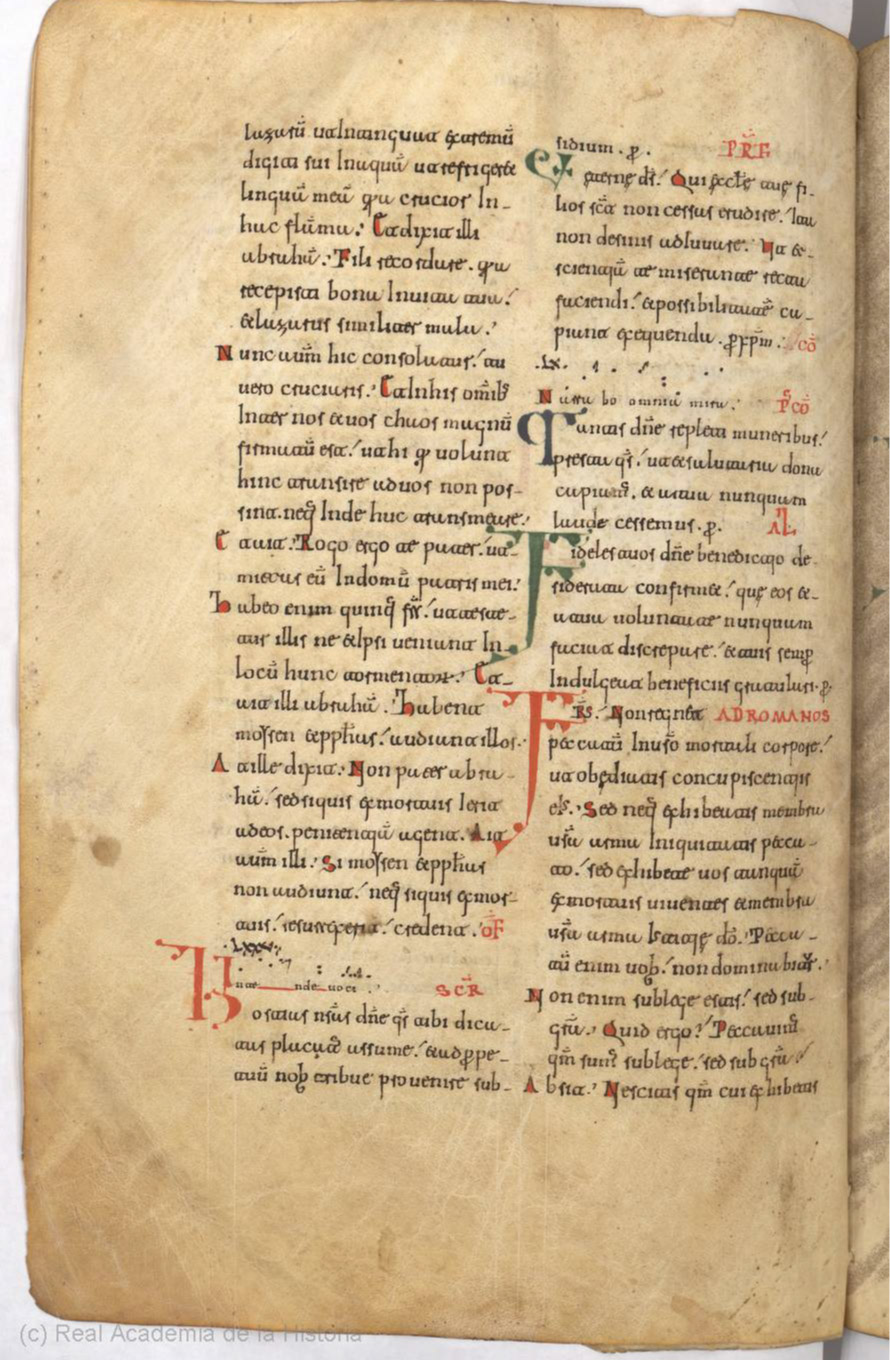 lazarũ ut intinguat extremũ
digiti sui in aquã ut refrigeret
linguã meã qa crucior in-
hac flãma. Et dixit illi
abrahã. Fili recordare. qa
recepisti bona in uita tua.
& lazarus similiter mala.
Nunc aũm hic consolatur. tu
uero cruciaris. Et in his omĩb
inter nos & uos chaos magnũ
firmatũ est. ut hi q uolunt
hinc transire ad uos non pos-
sint. neq inde huc transmeare.
Et ait. Rogo ergo te pater. ut
mictas eũ in domũ patris mei.
Habeo enim quinq frs. ut teste-
tur illis ne & ipsi ueniant in
locũ hunc tormentor. Et
ait illi abrahã. Habent
mossen & pphas. audiant illos.
At ille dixit. Non pater abra-
hã. sed si quis ex mortuis ierit
ad eos. penitentiã agent. Ait
aũm illi. Si mossen & pphas
non audiunt. neq si quis ex mor-
tuis. resurrexerit. credent. OF
LXXX
Intende uoci SCR
Hostias nras dñe qs tibi dica-
tas placatus assume. & ad ppe-
tuũ nob tribue prouenire sub-
sidium. p. PRF
Eterne ds. Qui eccle tue fi-
lios sca non cessas erudire.
non desinis adiuuare. Ut &
scientiã te miserante recta
faciendi. & possibilitatẽ ca-
piant exequendi. p xpm. CO
LX
Narra bo omnia mira. PCO
Tuatis dñe repleti muneribus.
presta qs. ut & salutaria dona
capiam. & a tua nunquam
laude cessemus. p. AL
Fideles tuos dñe benedictio de-
siderata confirmet. que eos &
a tua uoluntate nunquam
faciat discrepare. & tuis semp
indulgeat beneficiis gratulari. p
FRS. Non regnet AD ROMANOS
peccatũ in uso mortali corpore.
ut obediatis concupiscentiis
eis. Sed neq exhibeatis membra
usa arma iniquitatis pecca-
to. sed exhibete uos tanquã
ex mortuis uiuentes & membra
usa arma iustitie do. Pecca-
tũ enim uob. non dominabitur.
Non enim sub lege estis. sed sub
gra. Quid ergo? Peccauim
qm sum sub lege. sed sub gra.
Absit. Nescitis qm cui exhibetis